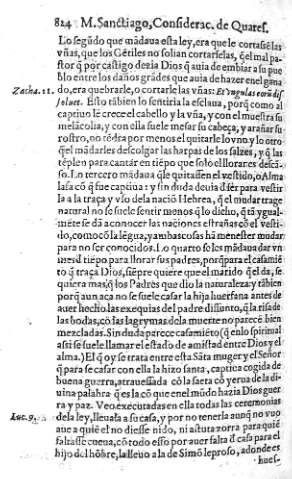 824 M. Sanctiago, Considerac. de Quares.
Lo segũdo que mãdaua esta ley, era que le cortassẽ las
vñas, que los Gẽtiles no solian cortarselas, q̃ el mal pa-
stor q̃ por castigo dezia Dios q̃ auia de embiar a su pue
blo entre los daños grãdes que auia de hazer en el gana
Zacha. 11. do, era quebrarle, o cortarle las vñas: Et vngulas eorũ dis
soluet. Esto tãbien lo sentiria la esclaua, porq̃ como al
captiuo le crece el cabello y la vña, y con el muestra su
melãcolia, y con ella suele mesar su cabeça, y arañar su
rostro, no tẽdra por menos el quitarle lo vno, y lo otro
q̃ el mãdarles descolgar las harpas de los salzes, y q̃ las
tẽplen para cantar en tiẽpo que solo el llorar es descã-
so. Lo tercero mãdaua q̃ le quitassen el vestido, o Alma
lasa cõ q̃ fue captiua: y sin duda deuia d̃ ser para vestir
la a la traça y vso dela naciõ Hebrea, q̃ el mudar trage
natural no se suele sentir menos q̃ lo dicho, q̃ tã ygual-
mẽte se dã a conocer las naciones estrañas cõ el vesti-
do, como cõ la lẽgua, y ambas cosas hã menester mudar
para no ser conocidos. Lo quarto se les mãdaua dar vn
mes d̃ tiẽpo para llorar sus padres, porq̃ para el casamiẽ
tõ q̃ traça Dios, siẽpre quiere que el marido q̃ el da, se
quiera mas, q̃ los Padres que dio la naturaleza: y tãbien
porq̃ aun aca no se suele casar la hija huerfana antes de
auer hecho las exequias del padre difunto, q̃ la risa de
las bodas, cõ las lagrymas de la muerte no parecẽ bien
mezcladas. Sin duda parece casamiẽto (q̃ en lo spiritual
assi se suele llamar el estado de amistad entre Dios y el
alma.) El q̃ oy se trata entre esta Sãta muger y el Señor
q̃ para se casar con ella la hizo santa, captiua cogida de
buena guerra, atrauessada cõ la saeta cõ yerua de la di-
uina palabra q̃ es la cõ que en el mũdo hazia Dios guer
ra y paz. Veo executadas en ella todas las ceremonias
Luc. 9. dela ley, lleuala a su casa, y por no tenerla aunq̃ no vuo
aue a quiẽ el no diesse nido, ni astuta zorra para quiẽ
faltasse cueua, cõ todo esso por auer falta d̃ casa para el
hijo del hõbre, la lleuo a la de Simõ leproso, adonde es
hues-